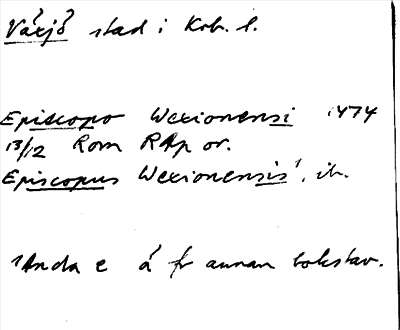 Växjö stad i Krb. l.
Episcopo Wexionensi 1474
13/12 Rom RAp or.
Episcopus Wexionensis¹, ib.
¹Andra e å fr annan bokstav.